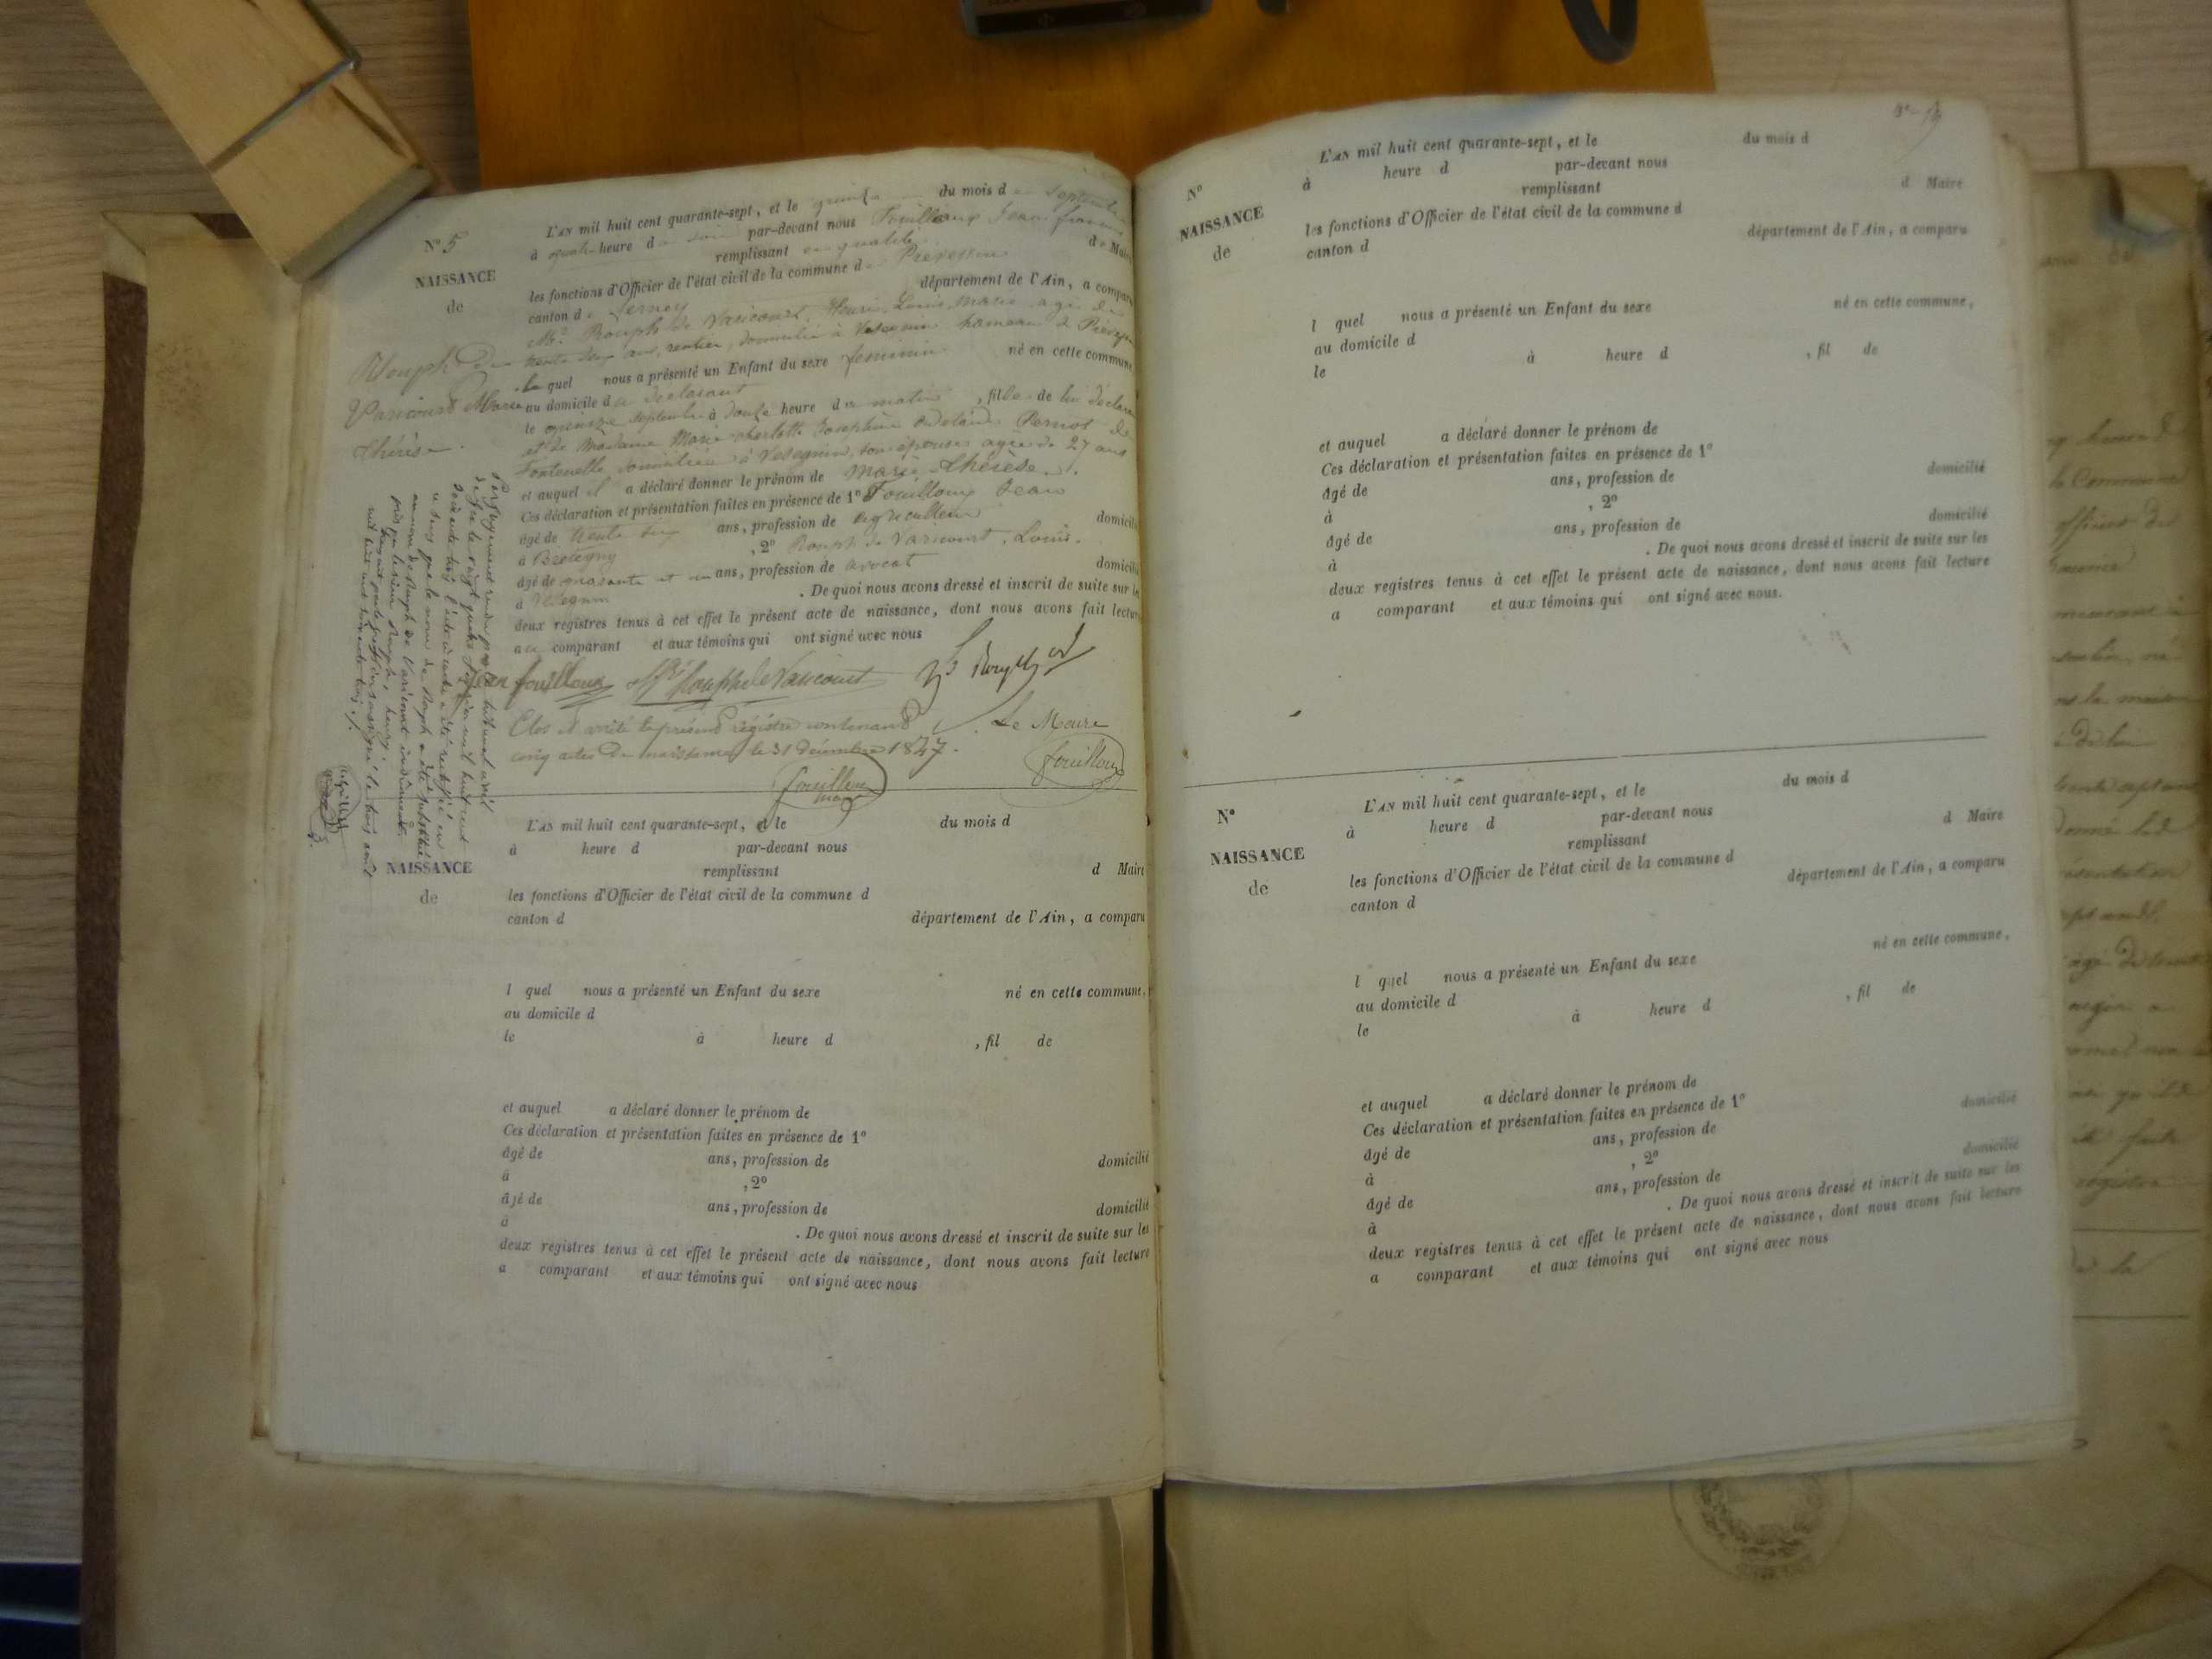 N° 5
NAISSANCE
de
Rouph de
Varicourt Marie
Thérèse.
L'AN mil huit cent quarante-sept, et le quinze du mois de Septembre
à quatre heure du soir par-devant nous Fouilloux Jean françois
remplissant en qualité de Maire
les fonctions d'Officier de l'état civil de la commune de Prevessin
canton de Ferney département de l'Ain, a comparu
Mr. Rouph de Varicourt, Henri, Louis, Marie agé de
trente deux ans, rentier, domicilié à Vesegnin hameau de Prévessin
le quel nous a présenté un Enfant du sexe feminin né en cette commune,
au domicile du déclarant
le quinze septembre à douze heure du matin, fille de lui déclarant
et de Madame Marie charlotte Josephine Pernot de
Fontenelle domiciliée à Vesegnin, son épouse, agée de 27 ans
et auquel il a déclaré donner le prénom de Marie Thérèse.
Ces déclaration et présentation faites en présence de 1° Fouilloux Jean
âgé de trente ans, profession de agriculteur domicilié
à Bretigny, 2° Rouph de Varicourt, Louis.
âgé de soixante et un ans, profession de avocat domicilié
à Vesegnin. De quoi nous avons dressé et inscrit de suite sur les
deux registres tenus à cet effet le présent acte de naissance, dont nous avons fait lecture
au comparant et aux témoins qui ont signé avec nous
Jean fouilloux Rouph de Varicourt
Clos et arrêté le présent régistre contenant Le Maire
cinq actes de naissance le 31 décembre 1847. fouilloux
fouilloux
Par jugement rendu par le tribunal civil
de Gex le vingt quatre mil huit cent
soixante trois, l'acte ci contre a été rectifié en
ce sens que le nom de Rouph a été substitué
au nom de Rouph de Varicourt indûment
pris par le sieur Rouph, henry
le trois août
mil huit cent soixante trois
NAISSANCE
de
L'AN mil huit cent quarante-sept, et le du mois d
à heure d par-devant nous
remplissant d Maire
les fonctions d'Officier de l'état civil de la commune d
canton d département de l'Ain, a comparu
l quel nous a présenté un Enfant du sexe né en cette commune,
au domicile d
le à heure d , fil de
et auquel a déclaré donner le prénom de
Ces déclaration et présentation faites en présence de 1°
âgé de ans, profession de domicilié
à , 2°
âgé de ans, profession de domicilié
à . De quoi nous avons dressé et inscrit de suite sur les
deux registres tenus à cet effet le présent acte de naissance, dont nous avons fait lecture
a comparant et aux témoins qui ont signé avec nous
N°
NAISSANCE
de
L'AN mil huit cent quarante-sept, et le du mois d
à heure d par-devant nous
remplissant d Maire
les fonctions d'Officier de l'état civil de la commune d
canton d département de l'Ain, a comparu
l quel nous a présenté un Enfant du sexe né en cette commune,
au domicile d
le à heure d , fil de
et auquel a déclaré donner le prénom de
Ces déclaration et présentation faites en présence de 1°
âgé de ans, profession de domicilié
à , 2°
âgé de ans, profession de domicilié
à . De quoi nous avons dressé et inscrit de suite sur les
deux registres tenus à cet effet le présent acte de naissance, dont nous avons fait lecture
a comparant et aux témoins qui ont signé avec nous.
N°
NAISSANCE
de
L'AN mil huit cent quarante-sept, et le du mois d
à heure d par-devant nous
remplissant d Maire
les fonctions d'Officier de l'état civil de la commune d
canton d département de l'Ain, a comparu
l quel nous a présenté un Enfant du sexe né en cette commune,
au domicile d
le à heure d , fil de
et auquel a déclaré donner le prénom de
Ces déclaration et présentation faites en présence de 1°
âgé de ans, profession de domicilié
à , 2°
âgé de ans, profession de domicilié
à . De quoi nous avons dressé et inscrit de suite sur les
deux registres tenus à cet effet le présent acte de naissance, dont nous avons fait lecture
a comparant et aux témoins qui ont signé avec nous